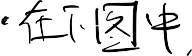 ·在下图中,